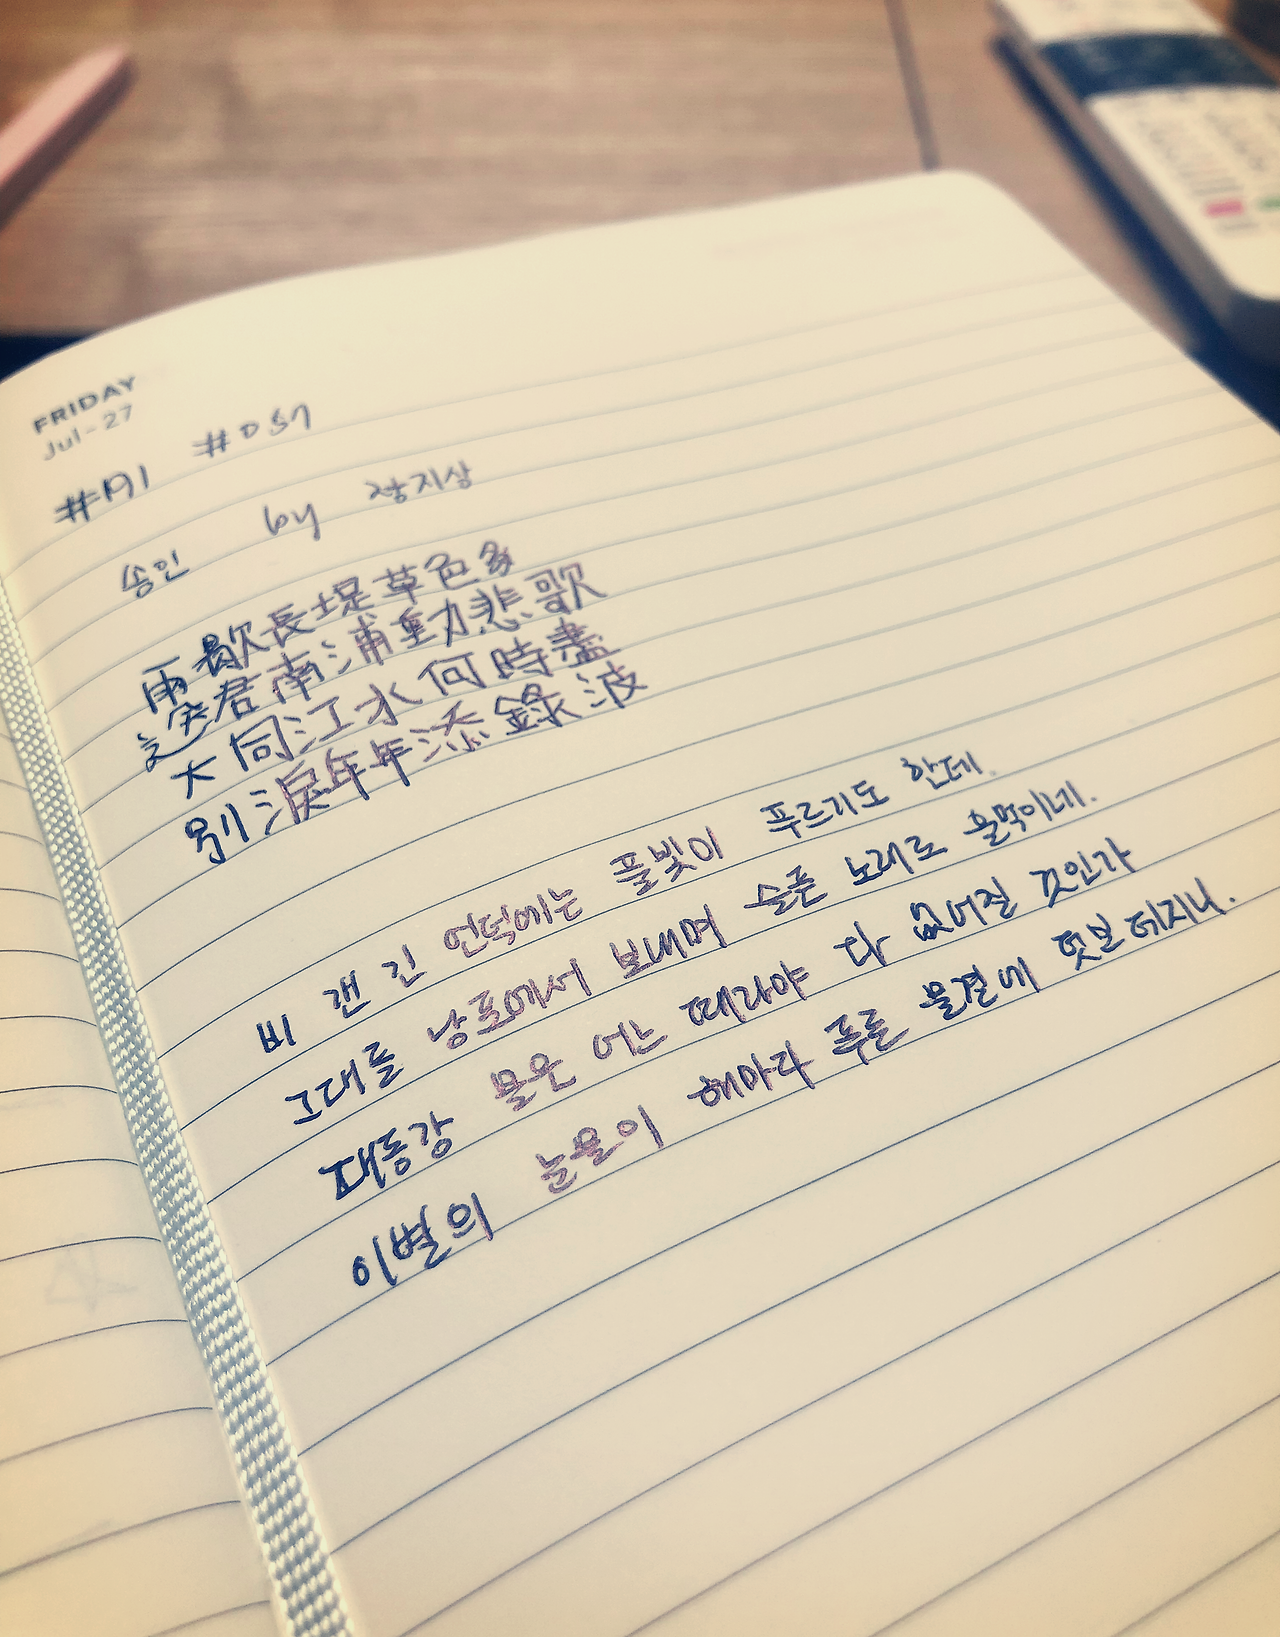 FRIDAY
Jul-27
#191 #057
송인 by 정지상
雨歇長堤草色多
送君南浦動悲歌
大同江水何時盡
別淚年年添錄波
비 갠 긴 언덕에는 풀빛이 푸르기도 한데.
그대를 남포에서 보내며 슬픈 노래로 울먹이네.
대동강 물은 어느 때라야 다 없어질 것인가
이별의 눈물이 해마다 푸른 물결에 덧보태지니.